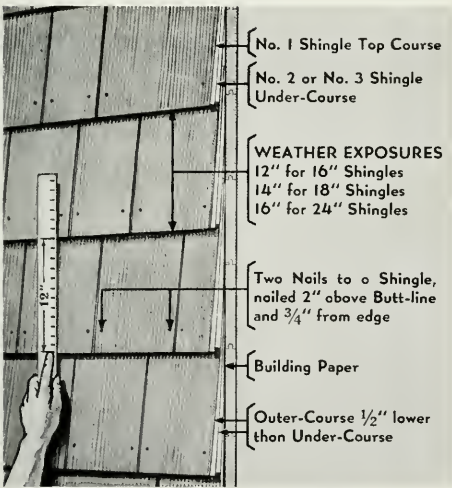 No. 1 Shingle Top Course
No. 2 or No. 3 Shingle
Under-Course
WEATHER EXPOSURES
12" for 16" Shingles
14" for 18" Shingles
16" for 24" Shingles
12"
Two Nails to a Shingle,
nailed 2" above Butt-line
and 3/4" from edge
Building Paper
Outer-Course 1/2" lower
than Under-Course